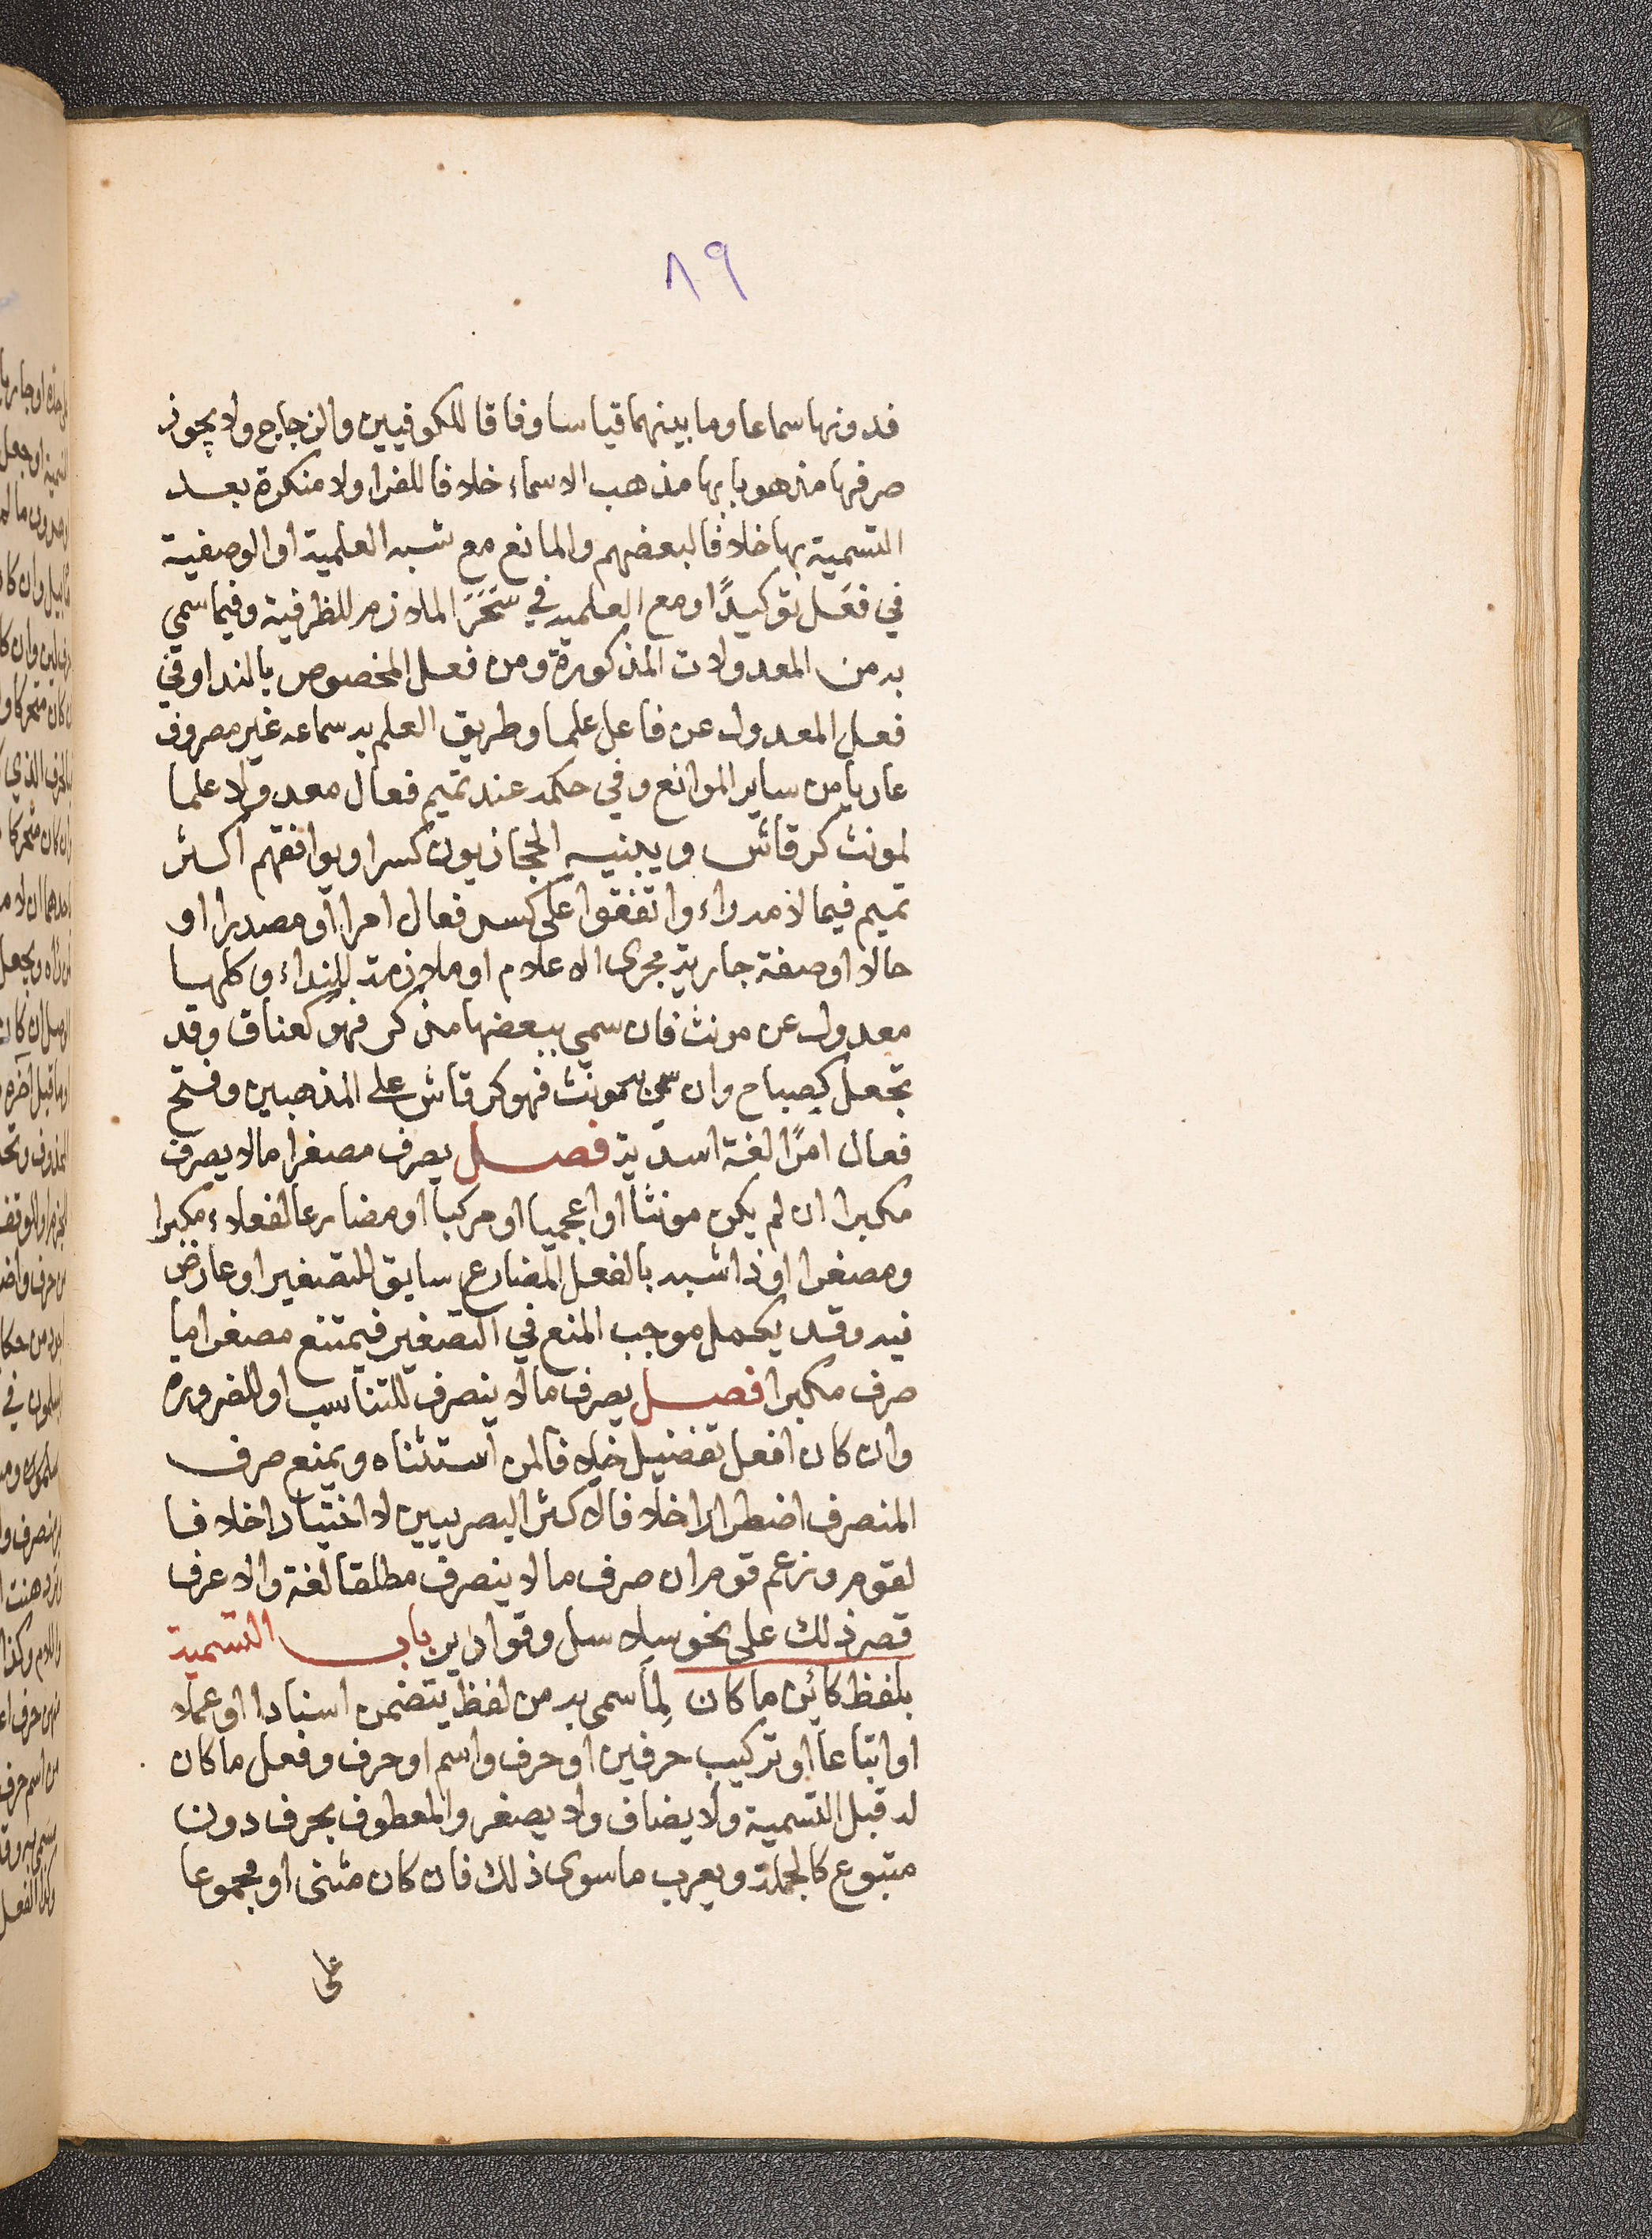 ٨٩
فدونها سماعا وما بينهما قياسا وفاقا للكوفيين والزجاج ولا يجوز
صرفها مذهوبا بها مذهب الاسماء خلافا للفرا ولا منكرة بعد
التسمية بها خلافا لبعضهم والمانع مع شبه العلمية او الوصفية
في فعَل توكيدًا ومع العلميه في سَحَرَ الملازم للظرفية وفيما سمي
به من المعدولات المذكورة ومن فعل المخصوص بالندا وفي
فعل المعدول عن فاعل علما وطريق العلم به سماعه غير مصروف
عاريا من ساير الموانع وفي حكمه عند تميم فعال معدولا علما
لمونث كرقاش ويبنيه الحجازيون كسرا ويوافقهم اكثر
تميم فيما لامه راء واتفقوا على كسر فعال امرا او مصدرا او
حالا او صفة جارية مجرى الاعلام او ملازمة للنداء وكلها
معدول عن مونث فان سمي ببعضها مذكر فهو كعناق وقد
تجعل كصباح وان سمي بمونث فهو كرقاش على المذهبين وفتح
فعال امرًا لغة اسدية فصل يصرف مصغرا مالا يصرف
مكبرا ان لم يكن مونثا او اعجميا او مركبا او مضارعا لفعلاء مكبرا
ومصغرا او ذا شبه بالفعل المضارع سابق للتصغير او عارض
فيه وقد يكمل موجب المنع في التصغير فيمتنع مصغرا ما
صرف مكبرا فصل يصرف مالا ينصرف للتناسب او للضروره
وان كان افعل تفضيل خلافا لمن استثناه ويمنع صرف
المنصرف اضطرارا خلافا لاكثر البصريين لا اختيارا خلافا
لقوم وزعم قوم ان صرف ما لا ينصرف مطلقا لغة والاعرف
قصر ذلك على نحو سلاسل وقوارير باب التسمية
بلفظ كائن ما كان لِمَا سمى به من لفظ يتضمن اسنادا او عملا
او اتباعا او تركيب حرفين او حرف واسم او حرف وفعل ما كان
له قبل التسمية ولا يضاف ولا يصغر والمعطوف بحرف دون
متبوع كالجملة ويعرب ما سوى ذلك فان كان مثنى او مجموعا
على